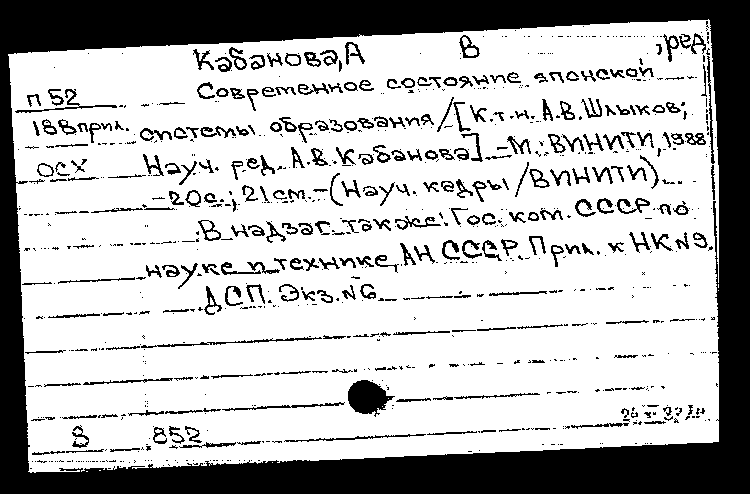 Кабанова, А В , ред
п 52 Современное состояние японской
188 прил. системы образования / [К.т.н. А.В. Шлыков;
ОСХ Науч. ред. А.В. Кабанова]. - М.: ВИНИТИ, 1988
- 20с.; 21см. - (Науч. кадры / ВИНИТИ).
В надзаг. также: Гос. ком. СССР по
науке и технике, АН СССР. Прил. к НК N9.
ДСП. Экз. N6
8 852